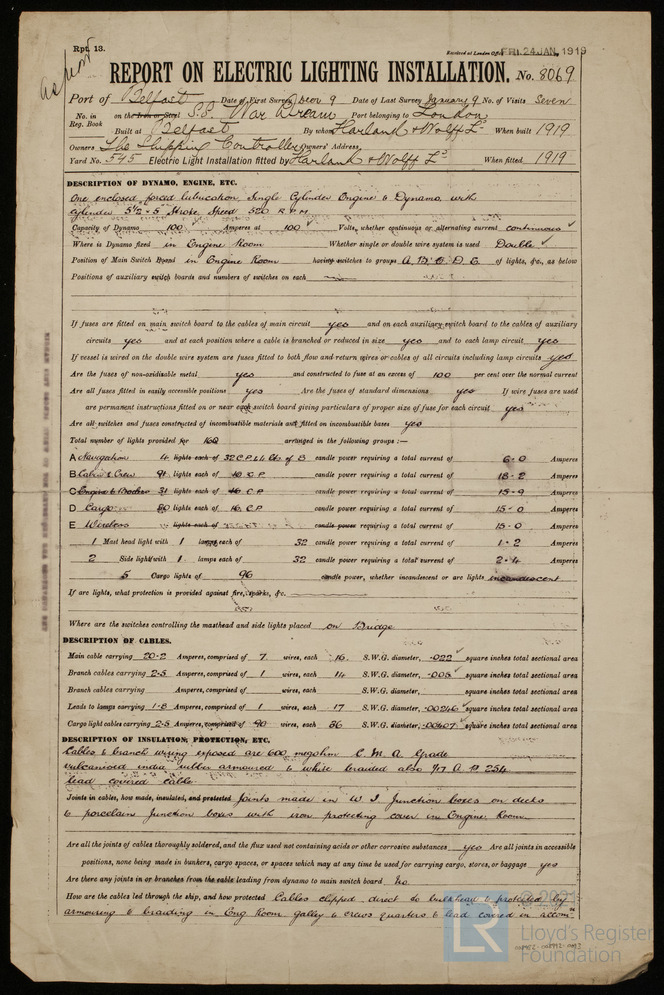 Rpt. 13.
Received at London Office FRI. 24 JAN. 1919
REPORT ON ELECTRIC LIGHTING INSTALLATION. No. 8069
Port of Belfast Date of First Survey Decr 9 Date of Last Survey January 9 No. of Visits Seven
No. in Reg. Book on the Iron or Steel S.S. War Dream Port belonging to London
Built at Belfast By whom Harland & Wolff Ld When built 1919
Owners The Shipping Controller Owners' Address
Yard No. 545 Electric Light Installation fitted by Harland & Wolff Ld When fitted 1919
DESCRIPTION OF DYNAMO, ENGINE, ETC.
One enclosed forced lubrication Single Cylinder Engine & Dynamo, with
cylinder 5½ × 5 Stroke Speed 520 R.P.M
Capacity of Dynamo 100 Amperes at 100 Volts, whether continuous or alternating current continuous
Where is Dynamo fixed in Engine Room Whether single or double wire system is used Double
Position of Main Switch Board in Engine Room having switches to groups A B C D E of lights, &c., as below
Positions of auxiliary switch boards and numbers of switches on each
If fuses are fitted on main switch board to the cables of main circuit yes and on each auxiliary switch board to the cables of auxiliary
circuits yes and at each position where a cable is branched or reduced in size yes and to each lamp circuit yes
If vessel is wired on the double wire system are fuses fitted to both flow and return wires or cables of all circuits including lamp circuits yes
Are the fuses of non-oxidizable metal yes and constructed to fuse at an excess of 100 per cent over the normal current
Are all fuses fitted in easily accessible positions yes Are the fuses of standard dimensions yes If wire fuses are used
are permanent instructions fitted on or near each switch board giving particulars of proper size of fuse for each circuit yes
Are all switches and fuses constructed of incombustible materials and fitted on incombustible bases yes
Total number of lights provided for 160 arranged in the following groups :—
A Navigation 4 lights each of 32 C.P. candle power requiring a total current of 6.0 Amperes
B Cabin & Crew 94 lights each of 16 C.P candle power requiring a total current of 18.2 Amperes
C Engine & Boilers 31 lights each of 16 C.P candle power requiring a total current of 15.9 Amperes
D Cargo 30 lights each of 16 C.P candle power requiring a total current of 15.0 Amperes
E Wireless lights each of candle power requiring a total current of 15.0 Amperes
1 Mast head light with 1 lamps each of 32 candle power requiring a total current of 1.2 Amperes
2 Side light with 1 lamps each of 32 candle power requiring a total current of 2.4 Amperes
5 Cargo lights of 96 candle power, whether incandescent or arc lights incandescent
If arc lights, what protection is provided against fire, sparks, &c.
Where are the switches controlling the masthead and side lights placed on Bridge
DESCRIPTION OF CABLES.
Main cable carrying 20.2 Amperes, comprised of 7 wires, each 16 S.W.G. diameter, .022 square inches total sectional area
Branch cables carrying 2.5 Amperes, comprised of 1 wires, each 14 S.W.G. diameter, .005 square inches total sectional area
Branch cables carrying Amperes, comprised of wires, each S.W.G. diameter, square inches total sectional area
Leads to lamps carrying 1.8 Amperes, comprised of 1 wires, each 17 S.W.G. diameter, .00246 square inches total sectional area
Cargo light cables carrying 2.5 Amperes, comprised of 90 wires, each 36 S.W.G. diameter, .00407 square inches total sectional area
DESCRIPTION OF INSULATION, PROTECTION, ETC.
Cables & branch wiring exposed are 600 megohm C M A Grade
vulcanised india rubber armoured & white braided also
lead covered cable
Joints in cables, how made, insulated, and protected Joints made in W I Junction boxes on decks
& porcelain Junction boxes with iron protecting cover in Engine Room
Are all the joints of cables thoroughly soldered, and the flux used not containing acids or other corrosive substances yes Are all joints in accessible
positions, none being made in bunkers, cargo spaces, or spaces which may at any time be used for carrying cargo, stores, or baggage yes
Are there any joints in or branches from the cable leading from dynamo to main switch board No
How are the cables led through the ship, and how protected Cables clipped direct to bulkhead & protected by
armouring & braiding in Eng Room galley & crews quarters & lead covered in accom
© 2021
LR
Lloyd's Register
Foundation